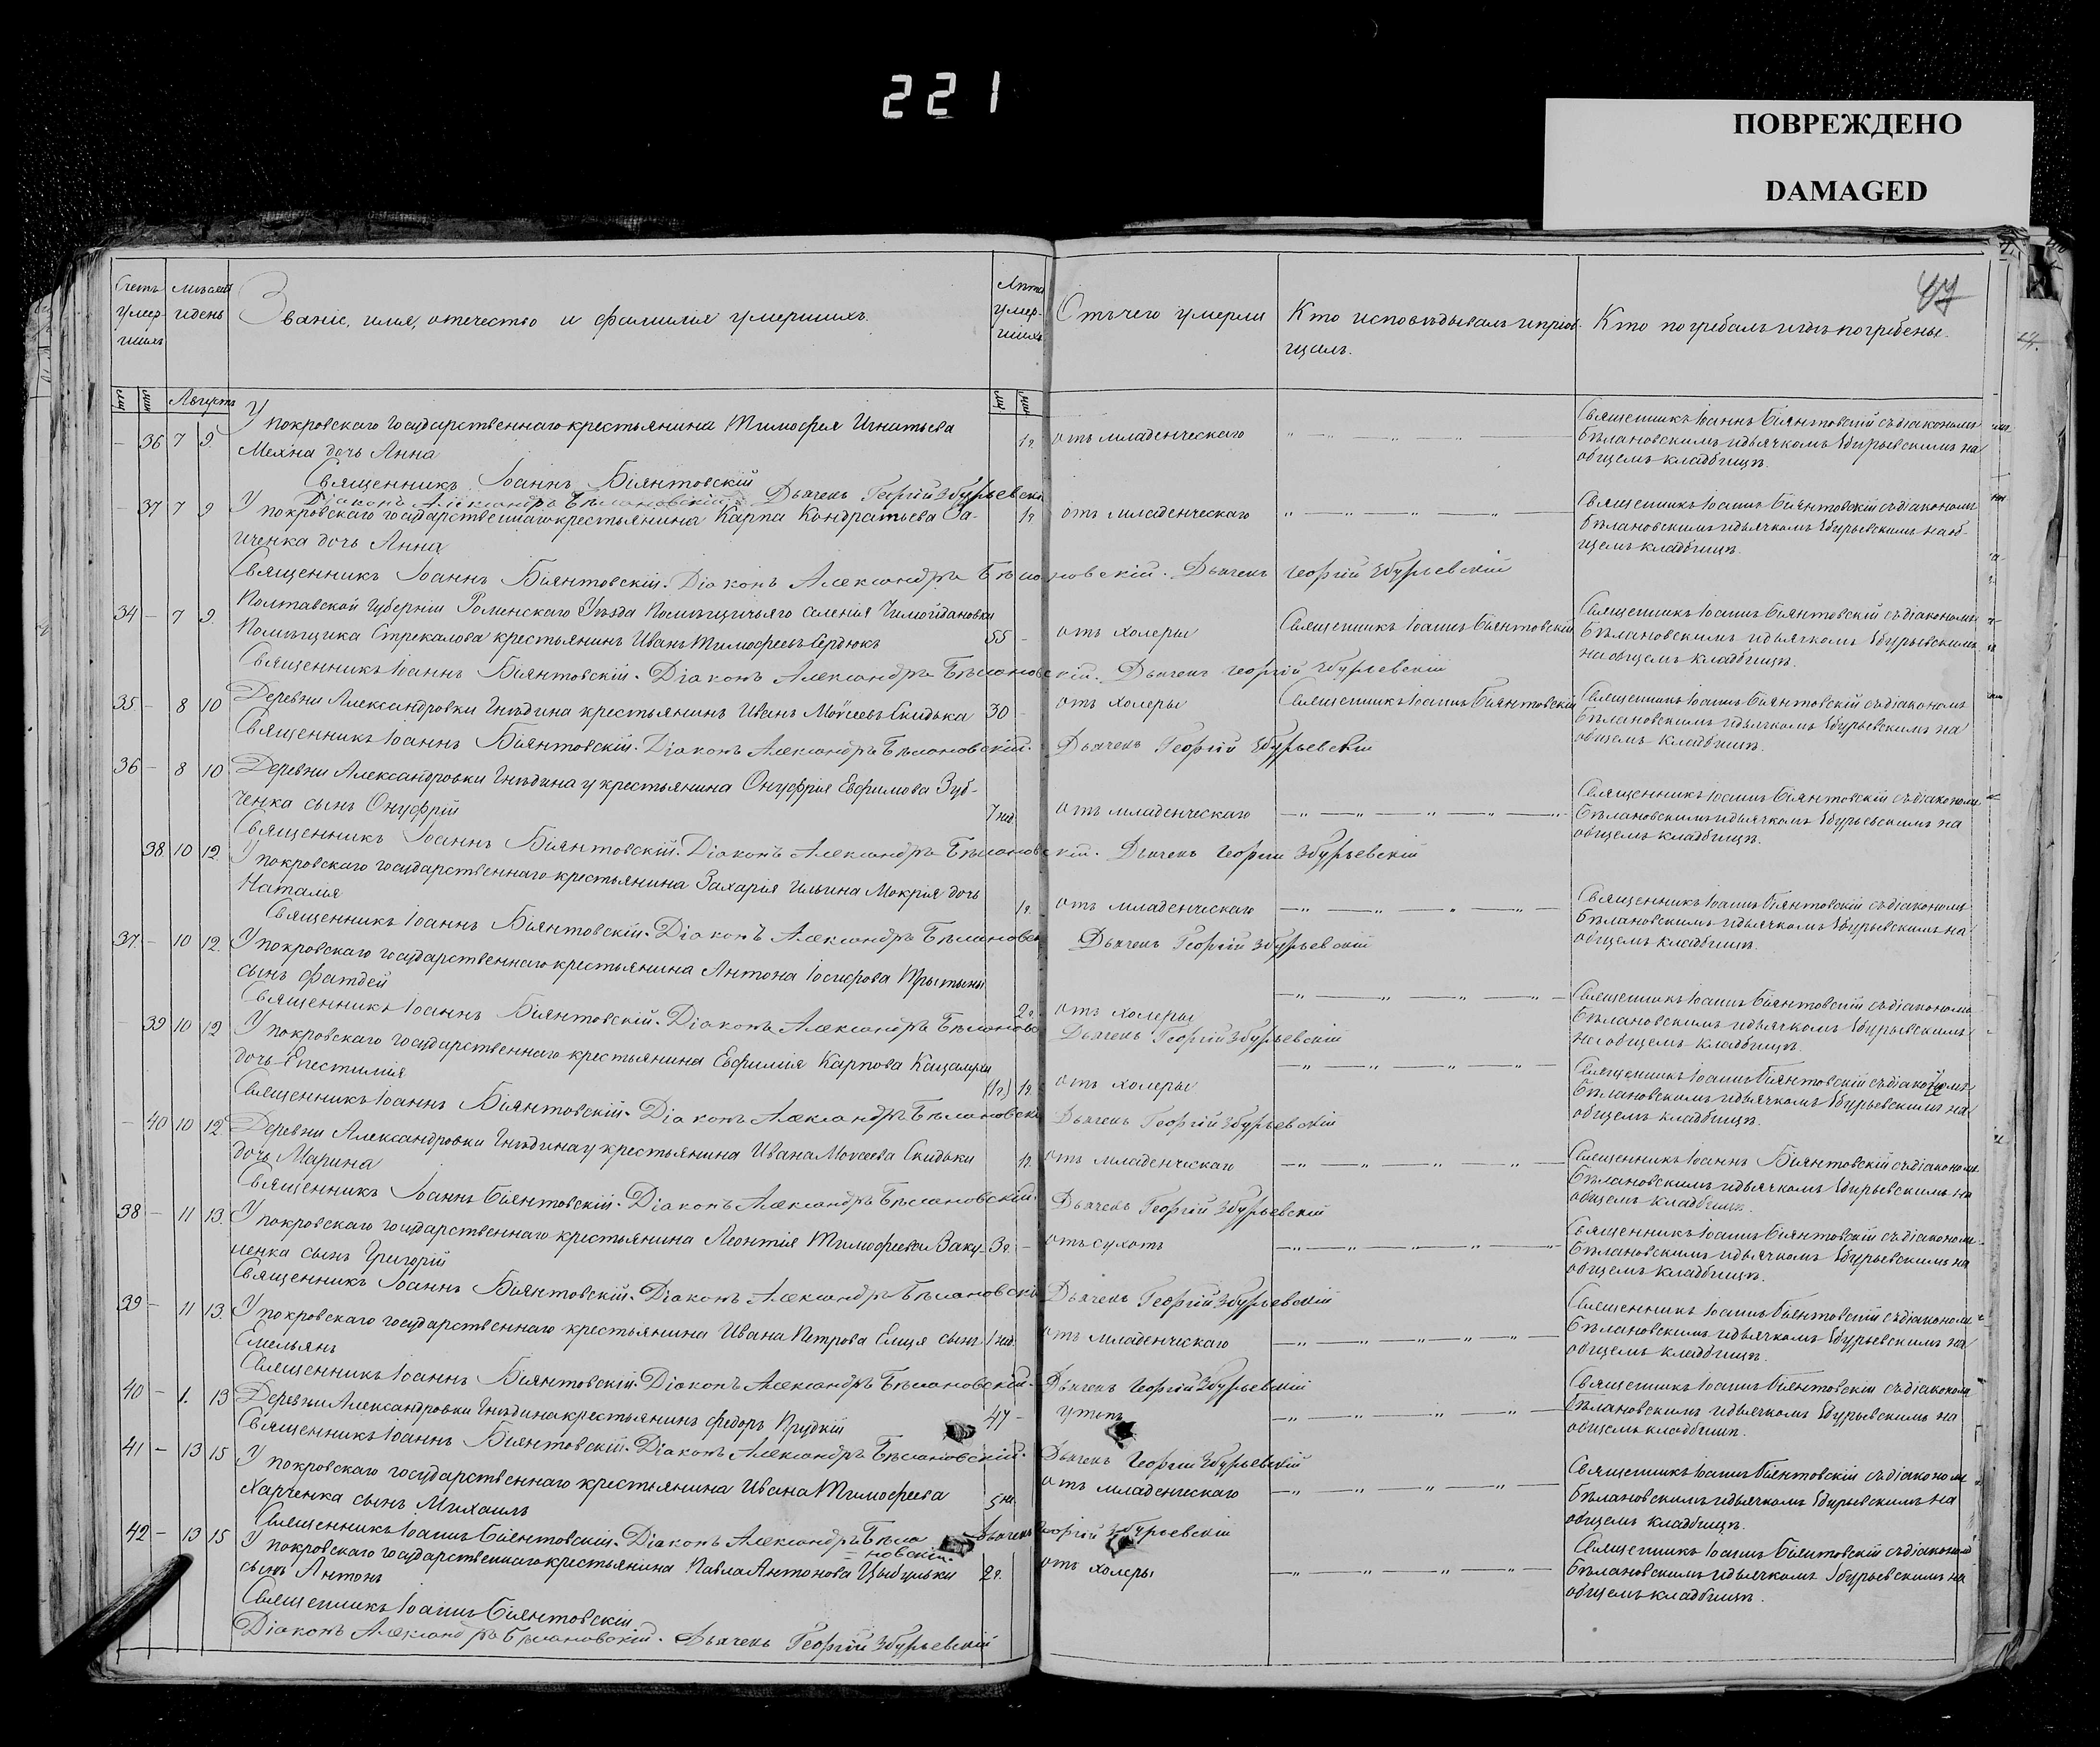 221
ПОВРЕЖДЕНО
DAMAGED
Счетъ умершихъ
Мѣсяцъ и день
Званіе, имя, отечество и фамилія умершихъ.
Лѣта умершихъ
Отъ чего умерли
Кто исповѣдывалъ и пріобщалъ.
Кто погребалъ и гдѣ погребены.
Августъ
– 36 7 9. У покровскаго государственнаго крестьянина Тимофея Игнатьева
Мехна дочь Анна 1г. отъ младенческаго
Священникъ Іоаннъ Біянтовскій съ діакономъ
Бѣлановскимъ и дьячкомъ Збурьевскимъ на
общемъ кладбищѣ.
Священникъ Іоаннъ Біянтовскій
Діаконъ Александръ Бѣлановскій. Дьячекъ Георгій Збурьевскій
– 37 7 9 У покровскаго государственнаго крестьянина Карпа Кондратьева За-
иченка дочь Анна 1г отъ младенческаго
Священникъ Іоаннъ Біянтовскій съ діакономъ
Бѣлановскимъ и дьячкомъ Збурьевскимъ на об-
щемъ кладбищѣ.
Священникъ Іоаннъ Біянтовскій. Діаконъ Александръ Бѣлановскій. Дьячекъ Георгій Збурьевскій
34 – 7 9. Полтавской Губерніи Роменскаго Уѣзда Помѣщичьяго селенія
Помѣщика Стрекалова крестьянинъ Иванъ Тимофеевъ Сердюкъ 55 – отъ холеры Священникъ Іоаннъ Біянтовскій
Священникъ Іоаннъ Біянтовскій съ діакономъ
Бѣлановскимъ и дьячкомъ Збурьевскимъ
на общемъ кладбищѣ.
Священникъ Іоаннъ Біянтовскій. Діаконъ Александръ Бѣлановскій. Дьячекъ Георгій Збурьевскій
35 – 8 10 Деревни Александровки Гнѣдина крестьянинъ Иванъ Моѵсеевъ Скидька 30 – отъ холеры Священникъ Іоаннъ Біянтовскій
Священникъ Іоаннъ Біянтовскій съ діакономъ
Бѣлановскимъ и дьячкомъ Збурьевскимъ на
общемъ кладбищѣ.
Священникъ Іоаннъ Біянтовскій. Діаконъ Александръ Бѣлановскій. Дьячекъ Георгій Збурьевскій
36 – 8 10 Деревни Александровки Гнѣдина у крестьянина Онуфрія Евфимова Зуб-
ченка сынъ Онуфрій 7 нед. отъ младенческаго
Священникъ Іоаннъ Біянтовскій съ діакономъ
Бѣлановскимъ и дьячкомъ Збурьевскимъ на
общемъ кладбищѣ.
Священникъ Іоаннъ Біянтовскій. Діаконъ Александръ Бѣлановскій. Дьячекъ Георгій Збурьевскій
38 10 12. У покровскаго государственнаго крестьянина Захарія Ильина Мокрія дочь
Наталія 1г. отъ младенческаго
Священникъ Іоаннъ Біянтовскій съ діакономъ
Бѣлановскимъ и дьячкомъ Збурьевскимъ на
общемъ кладбищѣ.
Священникъ Іоаннъ Біянтовскій. Діаконъ Александръ Бѣлановскій Дьячекъ Георгій Збурьевскій
37 – 10 12. У покровскаго государственнаго крестьянина Антона Іосифова
сынъ Фатдей 2г. отъ холеры
Священникъ Іоаннъ Біянтовскій съ діакономъ
Бѣлановскимъ и дьячкомъ Збурьевскимъ
на общемъ кладбищѣ.
Священникъ Іоаннъ Біянтовскій. Діаконъ Александръ Бѣлановскій Дьячекъ Георгій Збурьевскій
– 39 10 12 У покровскаго государственнаго крестьянина Евфимія Карпова
дочь Епестимія (1г.) 1г. отъ холеры
Священникъ Іоаннъ Біянтовскій съ діакономъ
Бѣлановскимъ и дьячкомъ Збурьевскимъ на
общемъ кладбищѣ.
Священникъ Іоаннъ Біянтовскій. Діаконъ Александръ Бѣлановскій Дьячекъ Георгій Збурьевскій
– 40 10 12 Деревни Александровки Гнѣдина у крестьянина Ивана Моѵсеева Скидьки
дочь Марина 1г. отъ младенческаго
Священникъ Іоаннъ Біянтовскій съ діакономъ
Бѣлановскимъ и дьячкомъ Збурьевскимъ на
общемъ кладбищѣ.
Священникъ Іоаннъ Біянтовскій. Діаконъ Александръ Бѣлановскій. Дьячекъ Георгій Збурьевскій
38 – 11 13. У покровскаго государственнаго крестьянина Леонтія Тимофеева Заку-
ленка сынъ Григорій 3г. – отъ сухотъ
Священникъ Іоаннъ Біянтовскій съ діакономъ
Бѣлановскимъ и дьячкомъ Збурьевскимъ на
общемъ кладбищѣ.
Священникъ Іоаннъ Біянтовскій. Діаконъ Александръ Бѣлановскій Дьячекъ Георгій Збурьевскій
39 – 11 13. У покровскаго государственнаго крестьянина Ивана Петрова сынъ
Емельянъ 1 нед. отъ младенческаго
Священникъ Іоаннъ Біянтовскій съ діакономъ
Бѣлановскимъ и дьячкомъ Збурьевскимъ на
общемъ кладбищѣ.
Священникъ Іоаннъ Біянтовскій. Діаконъ Александръ Бѣлановскій. Дьячекъ Георгій Збурьевскій
40 – 1. 13 Деревни Александровки Гнѣдина крестьянинъ Федоръ Прудкій 47 – утопъ
Священникъ Іоаннъ Біянтовскій съ діакономъ
Бѣлановскимъ и дьячкомъ Збурьевскимъ на
общемъ кладбищѣ.
Священникъ Іоаннъ Біянтовскій. Діаконъ Александръ Бѣлановскій. Дьячекъ Георгій Збурьевскій
41 – 13 15 У покровскаго государственнаго крестьянина Ивана Тимофеева
Харченка сынъ Михаилъ 5 не. отъ младенческаго
Священникъ Іоаннъ Біянтовскій съ діакономъ
Бѣлановскимъ и дьячкомъ Збурьевскимъ на
общемъ кладбищѣ.
Священникъ Іоаннъ Біянтовскій. Діаконъ Александръ Бѣла
=новскій. Дьячекъ Георгій Збурьевскій
42 – 13 15 У покровскаго государственнаго крестьянина Павла Антонова Цыбульки
сынъ Антонъ 2г. отъ холеры
Священникъ Іоаннъ Біянтовскій съ діакономъ
Бѣлановскимъ и дьячкомъ Збурьевскимъ на
общемъ кладбищѣ.
Священникъ Іоаннъ Біянтовскій
Діаконъ Александръ Бѣлановскій. Дьячекъ Георгій Збурьевскій